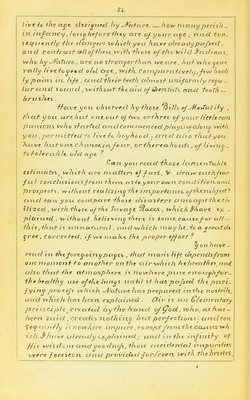 34
live to the age designed by Nature — how many perish
in infancy, long before they are of your age; and con-
sequently the dangers which you have already passed,
and contrast all of these, with those of the wild Indians,
who by Nature, are no stronger than we are, but who gene-
rally live to good old age, with comparatively, few bodi-
ly pains in life, and their teeth almost uniformly regu-
lar and sound, without the aid of Dentists and tooth
brushes.
Have you observed by those "Bills of Mortality,"
that you are but one out of two or three of your little com-
panions who started and commenced playing along with
you, permitted to live to boyhood, and also that you
have but one chance, in four, or thereabouts, of living
to tolerable old age?
Can you read those lamentable
estimates, which are matters of fact, & draw such fear-
ful conclusions from them as to your own condition and
prospects, without realizing the importance of the subject?
and can you compare these disasters amongst the civ-
ilized, with those of the Savage Races, which I have ex-
plained, without believing there is some cause for all
this, that is unnatural, and which may be, to a great de-
gree, corrected, if we make the proper effort?
You have
read in the foregoing pages, that man's life depends from
one moment to another on the air which he breathes, and
also that the atmosphere is nowhere pure enough for
the healthy use of the lungs until it has passed the puri-
fying process which Nature has prepared in the nostrils,
and which has been explained. Air is an Elementary
principle, created by the hand of God, who, as has
been said, creates nothing but perfections; and con-
sequently is nowhere impure, except from the causes wh-
ich I have already explained; and in the infinity of
His wisdom and goodness, those accidental impurities
were foreseen and provided for (even with the brutes,